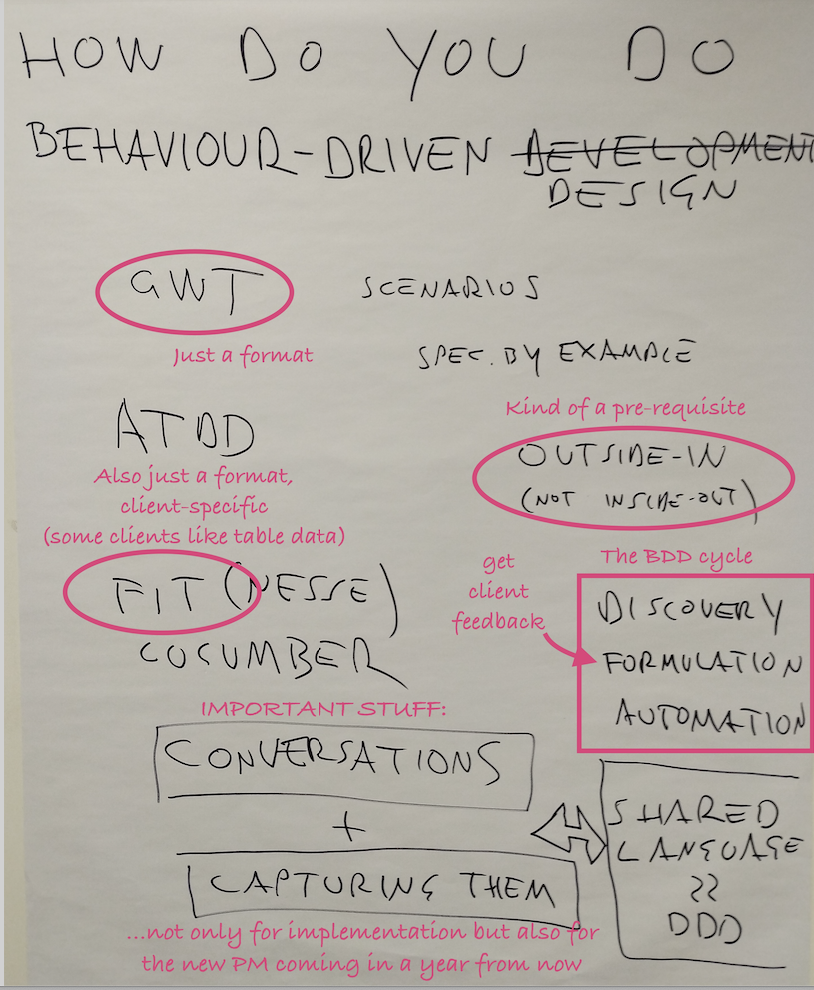 HOW DO YOU DO
BEHAVIOUR-DRIVEN DEVELOPMENT
DESIGN
GWT
SCENARIOS
Just a format
SPEC. BY EXAMPLE
ATDD
Also just a format,
client-specific
(some clients like table data)
Kind of a pre-requisite
OUTSIDE-IN
(NOT INSIDE-OUT)
FIT(NESSE)
CUCUMBER
get
client
feedback
The BDD cycle
DISCOVERY
FORMULATION
AUTOMATION
IMPORTANT STUFF:
CONVERSATIONS
+
CAPTURING THEM
SHARED
LANGUAGE
??
DDD
...not only for implementation but also for
the new PM coming in a year from now